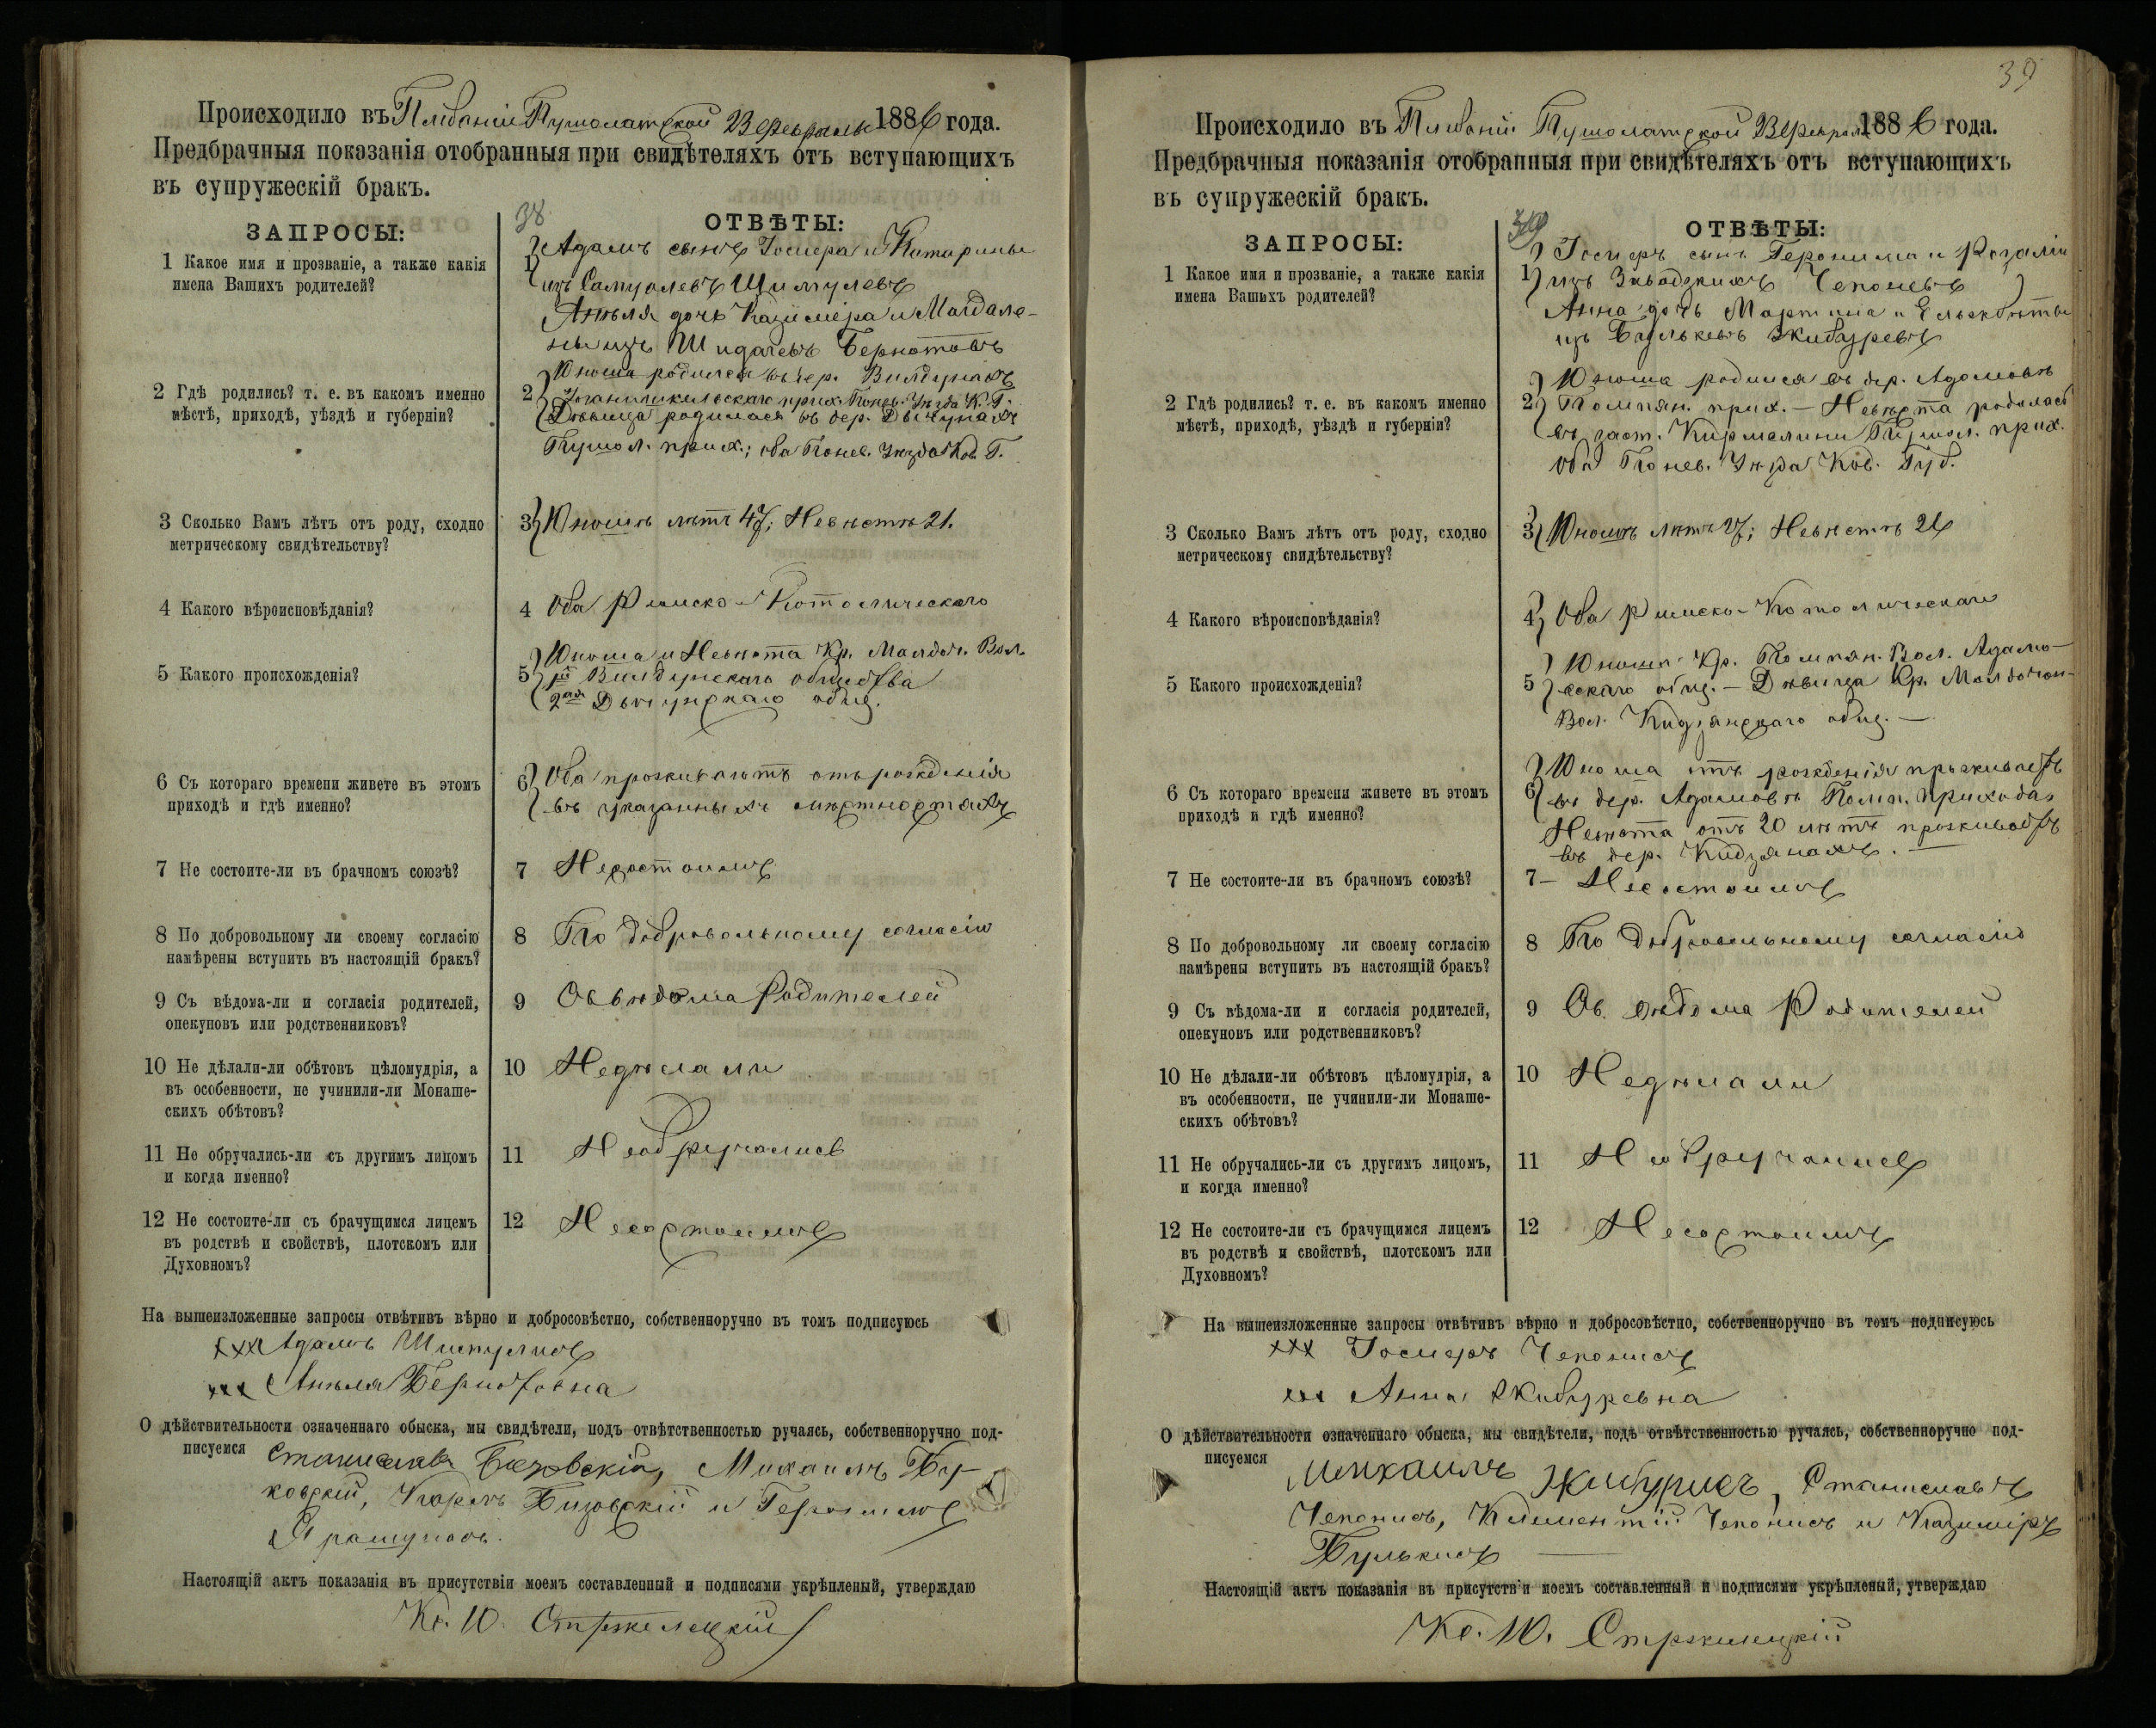 Происходило въ Плебаніи Пушолатской 23 Февраля 1886 года.
Предбрачныя показанія отобранныя при свидѣтеляхъ отъ вступающихъ
въ супружескій бракъ.
ЗАПРОСЫ:
38
ОТВѢТЫ:
1 Какое имя и прозваніе, а также какія
имена Вашихъ родителей?
1) Адамъ сынъ Іосифа и Катарины
изъ Самуолевъ Шимулевъ
Анеля дочь Казиміра и Магдале-
ны изъ Шидагевъ Бернотовъ
2 Гдѣ родились? т. е. въ какомъ именно
мѣстѣ, приходѣ, уѣздѣ и губерніи?
2 Юноша родился въ дер. Вилдунахъ
Іоганишкельскаго прих. Понев. Уѣзда К. Г.
Дѣвица родилась въ дер. Двигунахъ
Пушол. прих.; оба Понев. Уѣзда Ков. Г.
3 Сколько Вамъ лѣтъ отъ роду, сходно
метрическому свидѣтельству?
3) Юношѣ лѣтъ 47; Невѣстѣ 21.
4 Какого вѣроисповѣданія?
4 Оба Римско-Католическаго
5 Какого происхожденія?
5) Юноша и Невѣста Кр. Малдоч. Вол.
Вилдунскаго общества
2ая Двигунскаго общ.
6 Съ котораго времени живете въ этомъ
приходѣ и гдѣ именно?
6) Оба проживаютъ отъ рожденія
въ указанныхъ мѣстностяхъ
7 Не состоите-ли въ брачномъ союзѣ?
7 Несостоимъ
8 По добровольному ли своему согласію
намѣрены вступить въ настоящій бракъ?
8 По добровольному согласію
9 Съ вѣдома-ли и согласія родителей,
опекуновъ или родственниковъ?
9 Съ вѣдома Родителей
10 Не дѣлали-ли обѣтовъ цѣломудрія, а
въ особенности, не учинили-ли Монаше-
скихъ обѣтовъ?
10 Недѣлали
11 Не обручались-ли съ другимъ лицомъ
и когда именно?
11 Необручались
12 Не состоите-ли съ брачущимся лицемъ
въ родствѣ и свойствѣ, плотскомъ или
Духовномъ?
12 Несостоимъ
На вышеизложенные запросы отвѣтивъ вѣрно и добросовѣстно, собственноручно въ томъ подписуюсь
xxx Адамъ Шимулисъ
xxx Анеля Бернотовна
О дѣйствительности означеннаго обыска, мы свидѣтели, подъ отвѣтственностью ручаясь, собственноручно под-
писуемся Станиславъ Бизовскій, Михаилъ Бу-
ковскій, Кароль Бизовскій и Геронимъ
Ярашунасъ.
Настоящій актъ показанія въ присутствіи моемъ составленный и подписями укрѣпленый, утверждаю
Кс. Ю. Стржелецкій
39
Происходило въ Плебаніи Пушолатской 23 Февраля 1886 года.
Предбрачныя показанія отобранныя при свидѣтеляхъ отъ вступающихъ
въ супружескій бракъ.
ЗАПРОСЫ:
39
ОТВѢТЫ:
1 Какое имя и прозваніе, а также какія
имена Вашихъ родителей?
1) Іосифъ сынъ Геронима и Розаліи
изъ Завадзкихъ Чепоневъ
Анна дочь Мартина и Ельжбѣты
изъ Булькевъ Жибуревъ
2 Гдѣ родились? т. е. въ какомъ именно
мѣстѣ, приходѣ, уѣздѣ и губерніи?
2) Юноша родился въ дер. Адамовѣ
Помпян. прих. — Невѣста родилась
въ заст. Кирмелини Пушол. прих.
оба Понев. Уѣзда Ков. Губ.
3 Сколько Вамъ лѣтъ отъ роду, сходно
метрическому свидѣтельству?
3) Юношѣ лѣтъ 27; Невѣстѣ 21
4 Какого вѣроисповѣданія?
4) Оба Римско-Католическаго
5 Какого происхожденія?
5) Юноша Кр. Помпян. Вол. Адамо-
вскаго общ. — Дѣвица Кр. Малдочон-
Вол. Кидзянскаго общ. —
6 Съ котораго времени живете въ этомъ
приходѣ и гдѣ именно?
6) Юноша отъ рожденія проживаетъ
въ дер. Адамовѣ Помп. прихода
Невѣста отъ 20 лѣтъ проживаетъ
въ дер. Кидзянахъ. —
7 Не состоите-ли въ брачномъ союзѣ?
7 — Несостоимъ
8 По добровольному ли своему согласію
намѣрены вступить въ настоящій бракъ?
8 По добровольному согласію
9 Съ вѣдома-ли и согласія родителей,
опекуновъ или родственниковъ?
9 Съ вѣдома Родителей
10 Не дѣлали-ли обѣтовъ цѣломудрія, а
въ особенности, не учинили-ли Монаше-
скихъ обѣтовъ?
10 Недѣлали
11 Не обручались-ли съ другимъ лицомъ,
и когда именно?
11 Необручались
12 Не состоите-ли съ брачущимся лицемъ
въ родствѣ и свойствѣ, плотскомъ или
Духовномъ?
12 Несостоимъ
На вышеизложенные запросы отвѣтивъ вѣрно и добросовѣстно, собственноручно въ томъ подписуюсь
xxx Іосифъ Чепонисъ
xxx Анна Жибуревна
О дѣйствительности означеннаго обыска, мы свидѣтели, подъ отвѣтственностью ручаясь, собственноручно под-
писуемся Михаилъ Жибурисъ, Станиславъ
Чепонисъ, Климентій Чепонисъ и Казиміръ
Булькисъ —
Настоящій актъ показанія въ присутствіи моемъ составленный и подписями укрѣпленый, утверждаю
Кс. Ю. Стржелецкій